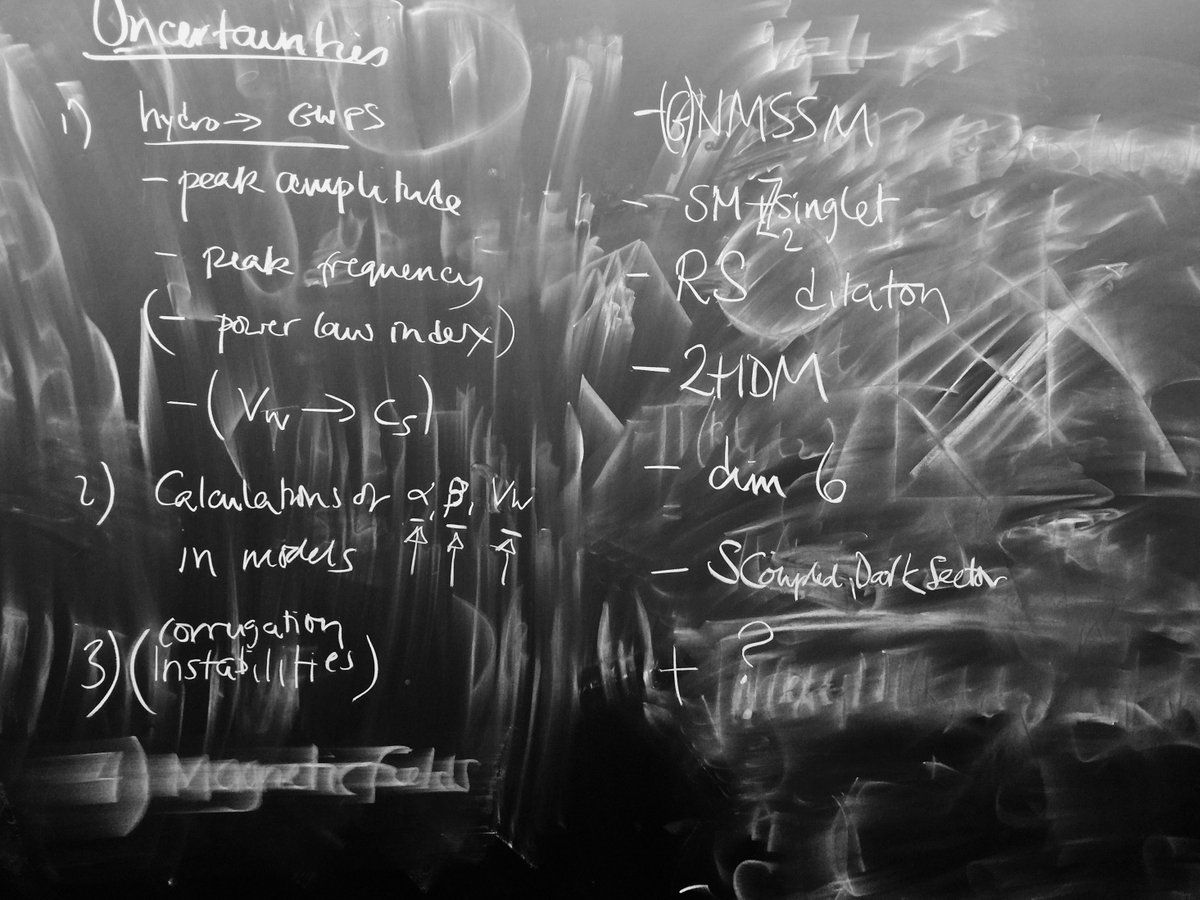 Uncertainties
1) hydro → GWPS
- peak amplitude
- peak frequency
(- power law index)
- (Vw → cs)
2) Calculations of α, β, Vw
in models
3) (corrugation
instabilities)
Magnetic fields
- (G)NMSSM
- SM + Z2 singlet
- RS dilaton
- 2HDM
- dim 6
- S Coupled, Dark Sector
+ ?